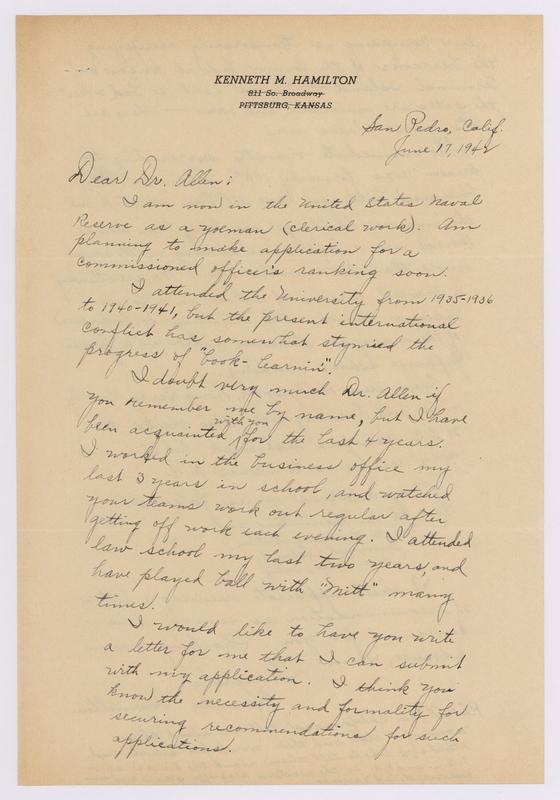 KENNETH M. HAMILTON
811 So. Broadway
PITTSBURG, KANSAS
San Pedro, Calif.
June 17, 1942
Dear Dr. Allen:
I am now in the United States Naval
Reserve as a yoeman (clerical work). Am
planning to make application for a
commissioned officer's ranking soon.
I attended the University from 1935-1936
to 1940-1941, but the present international
conflict has somewhat stymied the
progress of "book-learnin".
I doubt very much Dr. Allen if
you remember me by name, but I have
been acquainted with you for the last 4 years.
I worked in the business office my
last 3 years in school, and watched
your teams work out regular after
getting off work each evening. I attended
law school my last two years, and
have played ball with "Mitt" many
times.
I would like to have you write
a letter for me that I can submit
with my application. I think you
know the necessity and formality for
securing recommendations for such
applications.